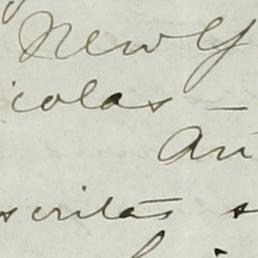 New Y
icolas —
An
scritas s